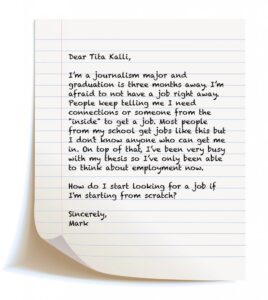 Dear Tita Kalli,
I'm a journalism major and
graduation is three months away. I'm
afraid to not have a job right away.
People keep telling me I need
connections or someone from the
"inside" to get a job. Most people
from my school get jobs like this but
I don't know anyone who can get me
in. On top of that, I've been very busy
with my thesis so I've only been able
to think about employment now.
How do I start looking for a job if
I'm starting from scratch?
Sincerely,
Mark